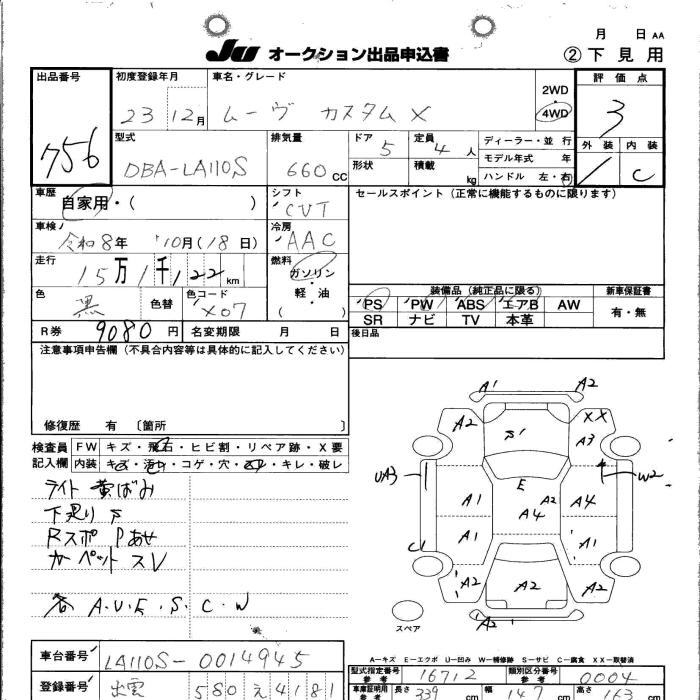 月 日 AA
JU オークション出品申込書 ②下見用
出品番号 初度登録年月 車名・グレード 評価点
756 23 12月 ムーヴ カスタムX 2WD 4WD 3
型式 排気量 ドア 定員 ディーラー・並行 外装 内装
DBA-LA110S 660cc 5 4人 モデル年式 年 C
形状 積載 kg ハンドル 左・右
車歴 シフト セールスポイント(正常に機能するものに限ります)
自家用・( ) CVT
車検 冷房
令和8年 10月(18日) AAC
走行 燃料
15万1千122km ガソリン・軽油
( )
色 黒 色替 色コード X07
装備品(純正品に限る) 新車保証書
PS PW ABS エアB AW 有・無
SR ナビ TV 本革
R券 9080円 名変期限 月 日 後日品
注意事項申告欄(不具合内容等は具体的に記入してください)
修復歴 有 〔箇所 〕
検査員記入欄 FW キズ・飛石・ヒビ割・リペア跡・X要
内装 キズ・汚れ・コゲ・穴・キレ・破レ
ライト黄ばみ
下廻りサ
Rスポ Pあせ
カーペット スレ
各 A.U.E.S.C.W
A1 A2
A2 XX
A3
UA3 E W2
A1 A2 A4
A4
A1 A1
A2 A2 A2
A2
スペア
A-キズ E-エクボ U-凹み W-補修跡 S-サビ C-腐食 XX-取替済
車台番号 LA110S-0014945
型式指定番号 参考 16712 類別区分番号 参考 0004
登録番号 出雲 580 え 4181
車庫証明用 参考 長さ 339cm 幅 147cm 高さ 163